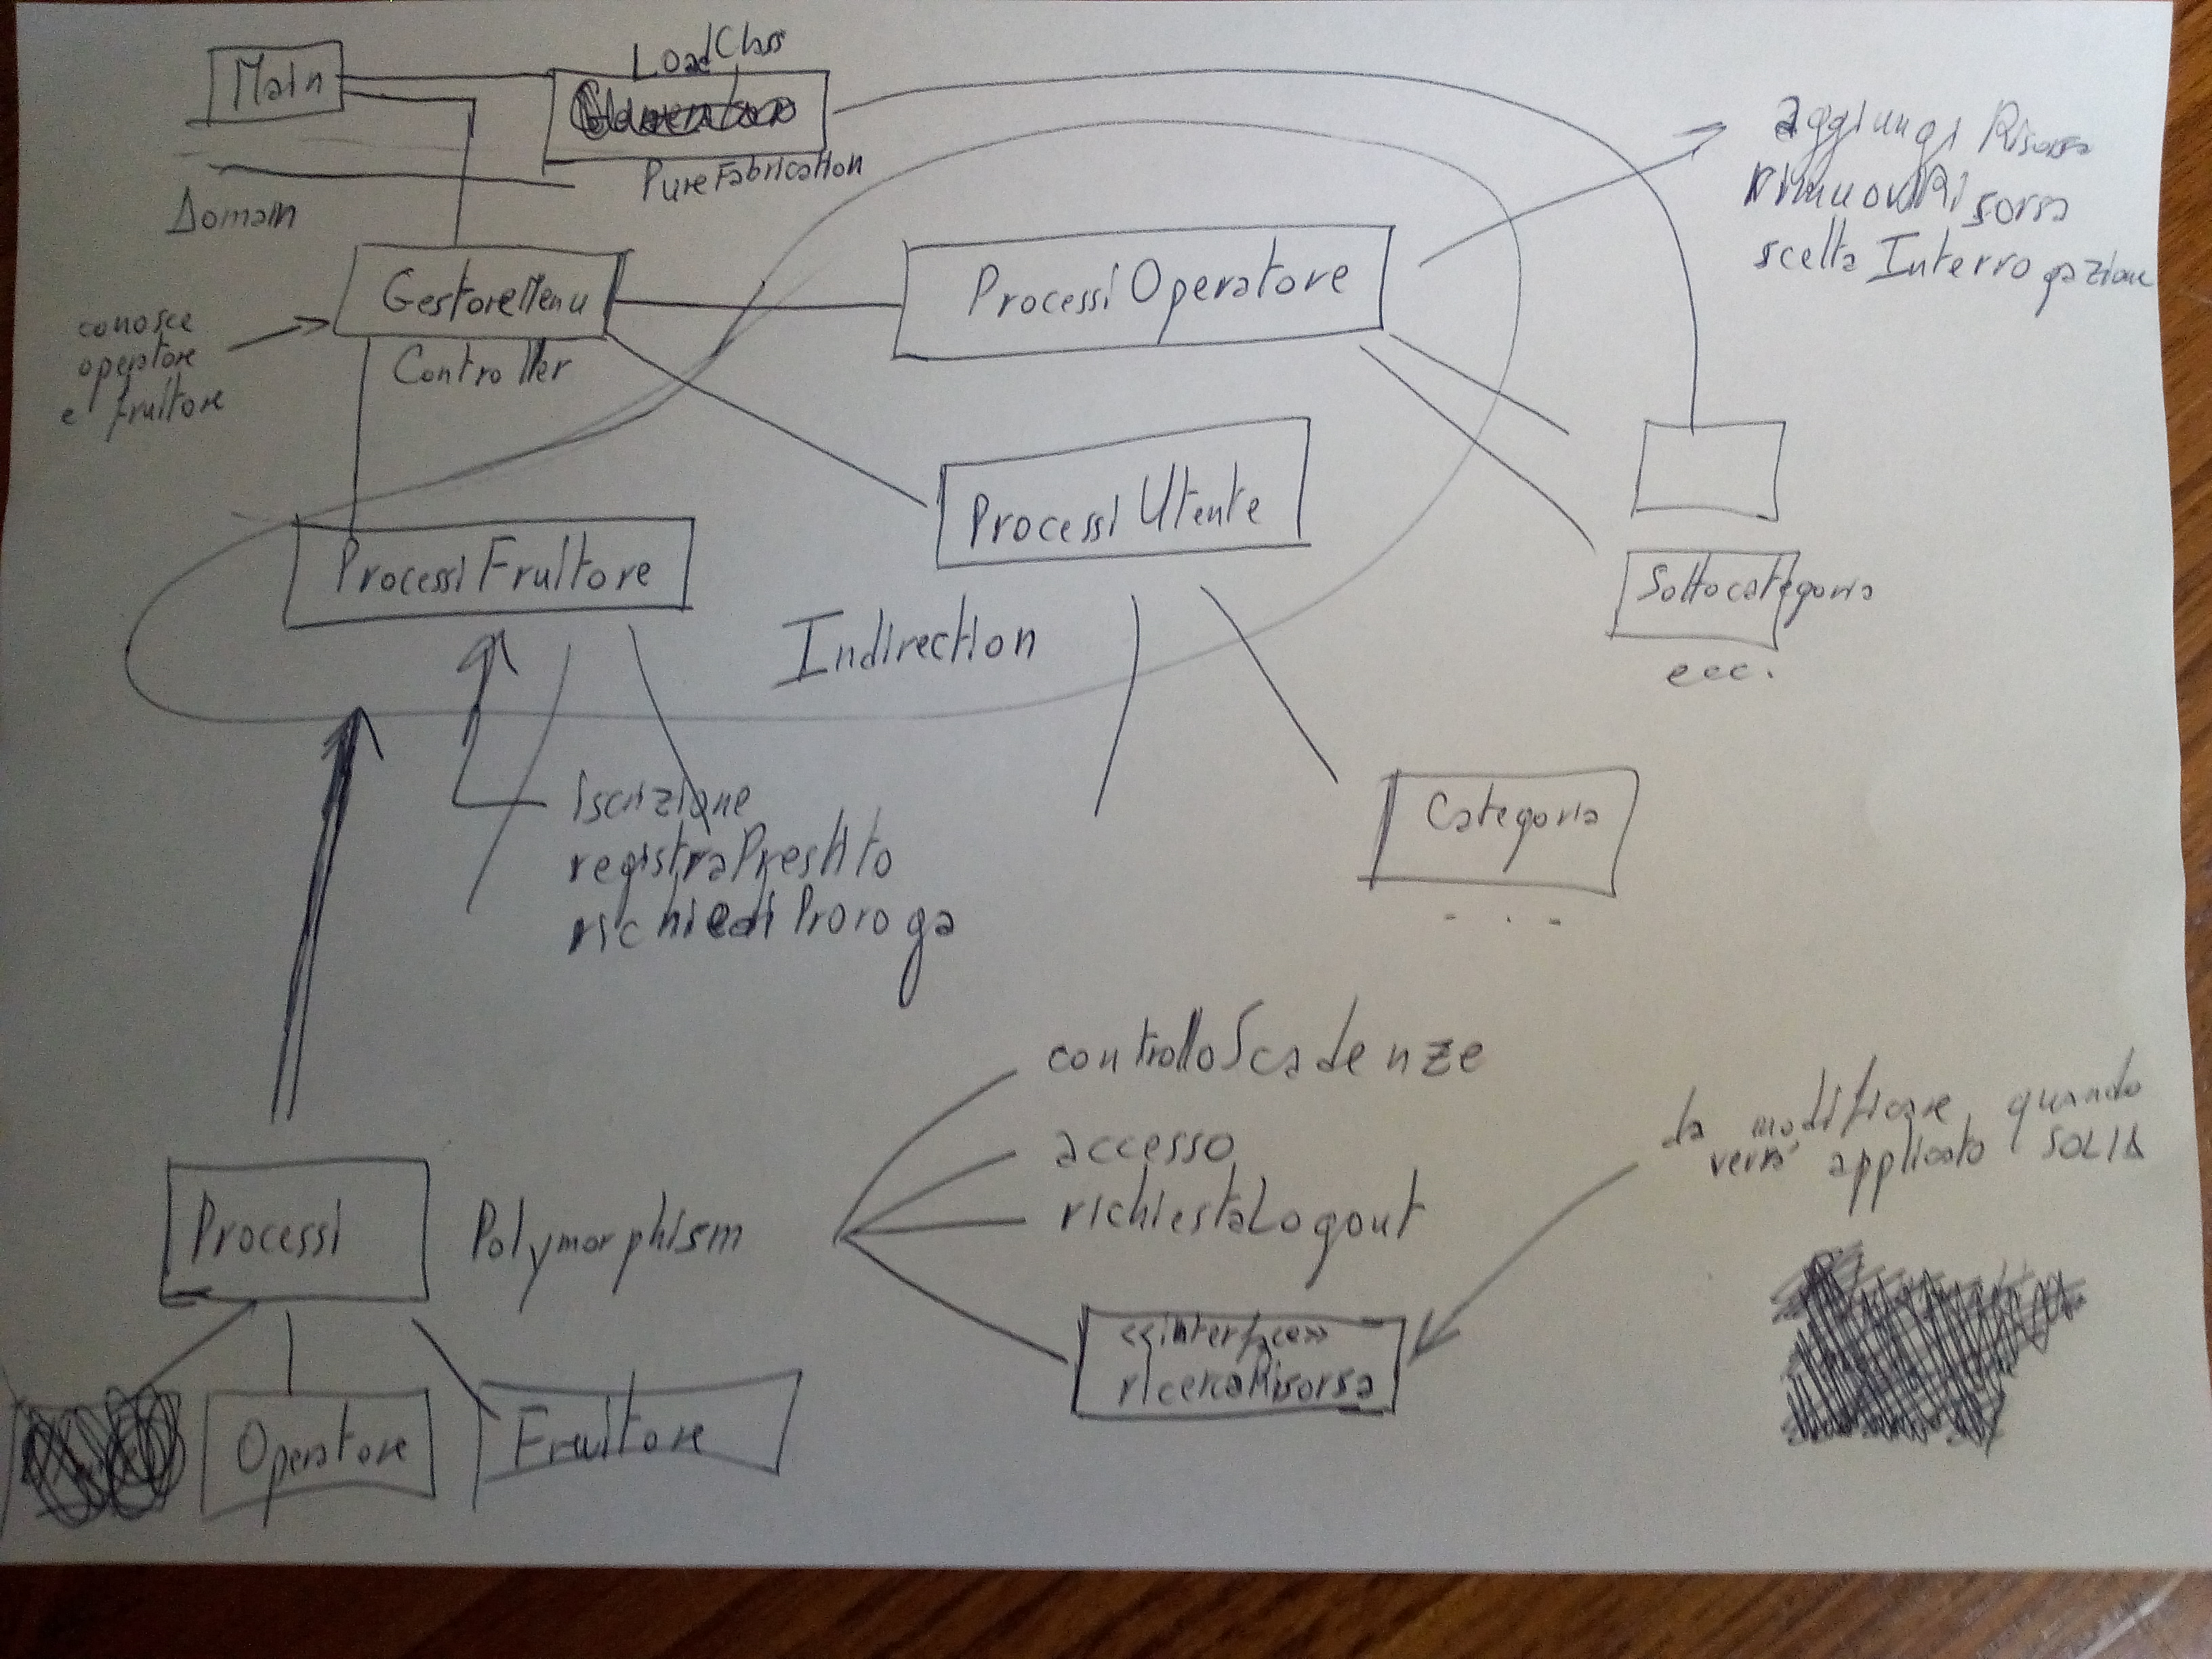 LoadClass
Main
PureFabrication
Domain
aggiungi Risorsa
rimuoviRisorsa
scelta Interrogazione
GestoreMenu
Controller
conosce
operatore
e fruitore
Processi Operatore
Processi Utente
Processi Fruitore
Indirection
Sottocategoria
ecc.
iscrizione
registraPrestito
richiediProroga
Categoria
. . .
controlloScadenze
accesso
richiestaLogout
da modificare quando
verrà applicato SOLID
Processi
Polymorphism
<<interface>>
ricercaRisorsa
Operatore
Fruitore